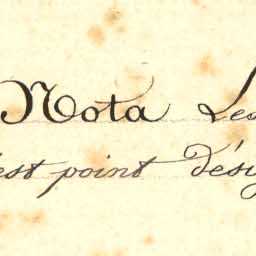 Nota Les
est point dési